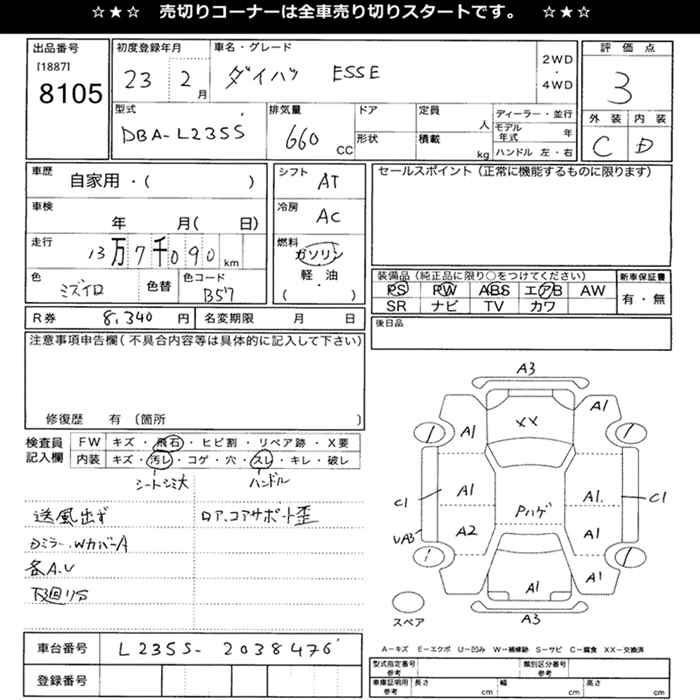 ☆★☆ 売切りコーナーは全車売り切りスタートです。 ☆★☆
出品番号
[1887]
8105
初度登録年月
23 2月
車名・グレード
ダイハツ ESSE
2WD
・
4WD
評価点
3
外装 内装
C D
型式
DBA-L235S
排気量
660 CC
ドア
形状
定員 人
積載 kg
ディーラー・並行
モデル年式 年
ハンドル 左・右
車歴
自家用・( )
車検
年 月( 日)
走行
13万7千090km
色
ミズイロ
色替
色コード
B57
シフト
AT
冷房
AC
燃料
ガソリン
軽・油
( )
セールスポイント(正常に機能するものに限ります)
装備品(純正品に限り○をつけてください)
PS PW ABS エアB AW
SR ナビ TV カワ
新車保証書
有・無
後日品
R券 8,340 円 名変期限 月 日
注意事項申告欄(不具合内容等は具体的に記入して下さい)
修復歴 有 (箇所 )
検査員
記入欄
FW キズ・飛石・ヒビ割・リペア跡・X要
内装 キズ・汚レ・コゲ・穴・スレ・キレ・破レ
シートシミ大 ハンドル
送風出ず
Dミラー、WカバーA
各A.U
下廻りS
ロア、コアサポート歪
A3
XX
A1
A1
A1
A1.
C1
C1
Pハゲ
A2
A1
UA3
A1
A1
A3
スペア
A-キズ E-エクボ U-凹み W-補修跡 S-サビ C-腐食 XX-交換済
車台番号 L235S-2038476
登録番号
型式指定番号
参考
類別区分番号
参考
車庫証明用
参考
長さ cm 幅 cm 高さ cm